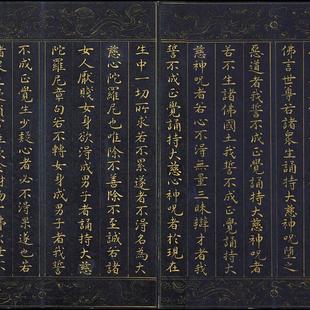 佛言世尊若諸眾生誦持大慈神呪墮三
惡道者我誓不成正覺誦持大慈神呪者
若不生諸佛國土我誓不成正覺誦持大
慈神呪者若心不得無量三昧辯才者我
誓不成正覺誦持大慈心神呪者於現在
生中一切所求若不果遂者不得名為大
慈心陀羅尼也唯除不善除不至誠若諸
女人厭賤女身欲得成男子者誦持大慈
陀羅尼章句若不轉女身成男子者我誓
不成正覺生少疑心者必不得果遂也若